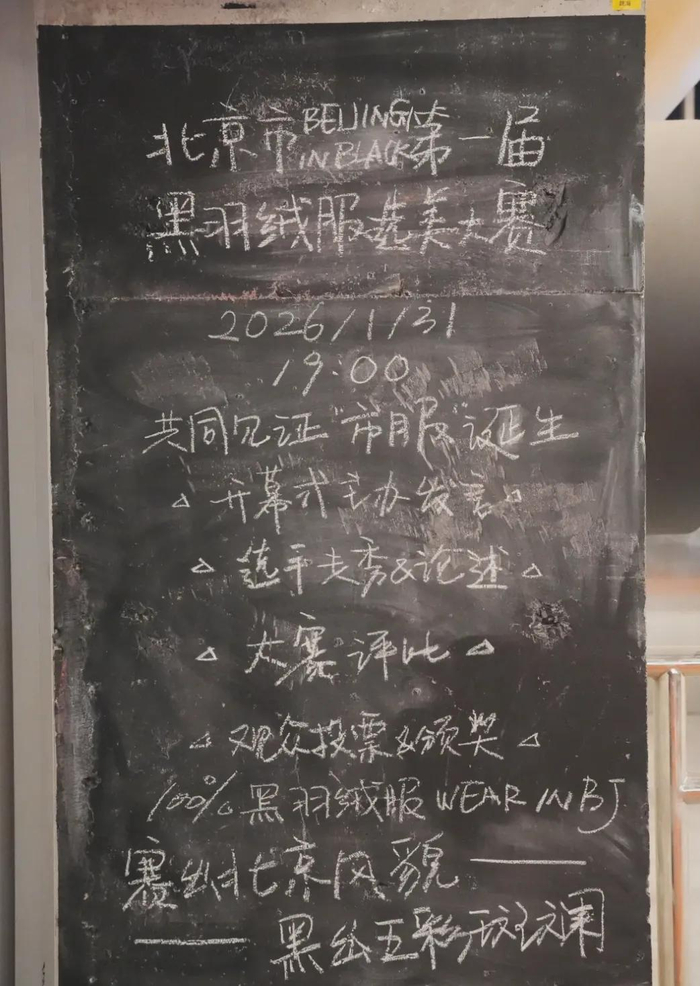 北京市 BEILING IN BLACK 第一届
黑羽绒服选美大赛
2026/1/31
19:00
共同见证"市服"诞生
△ 开幕式主办发言 △
△ 选手走秀&论述 △
△ 大赛评比 △
△ 观众投票&颁奖 △
100% 黑羽绒服 WEAR IN BJ
赛出北京风貌——
——黑出五彩斑斓